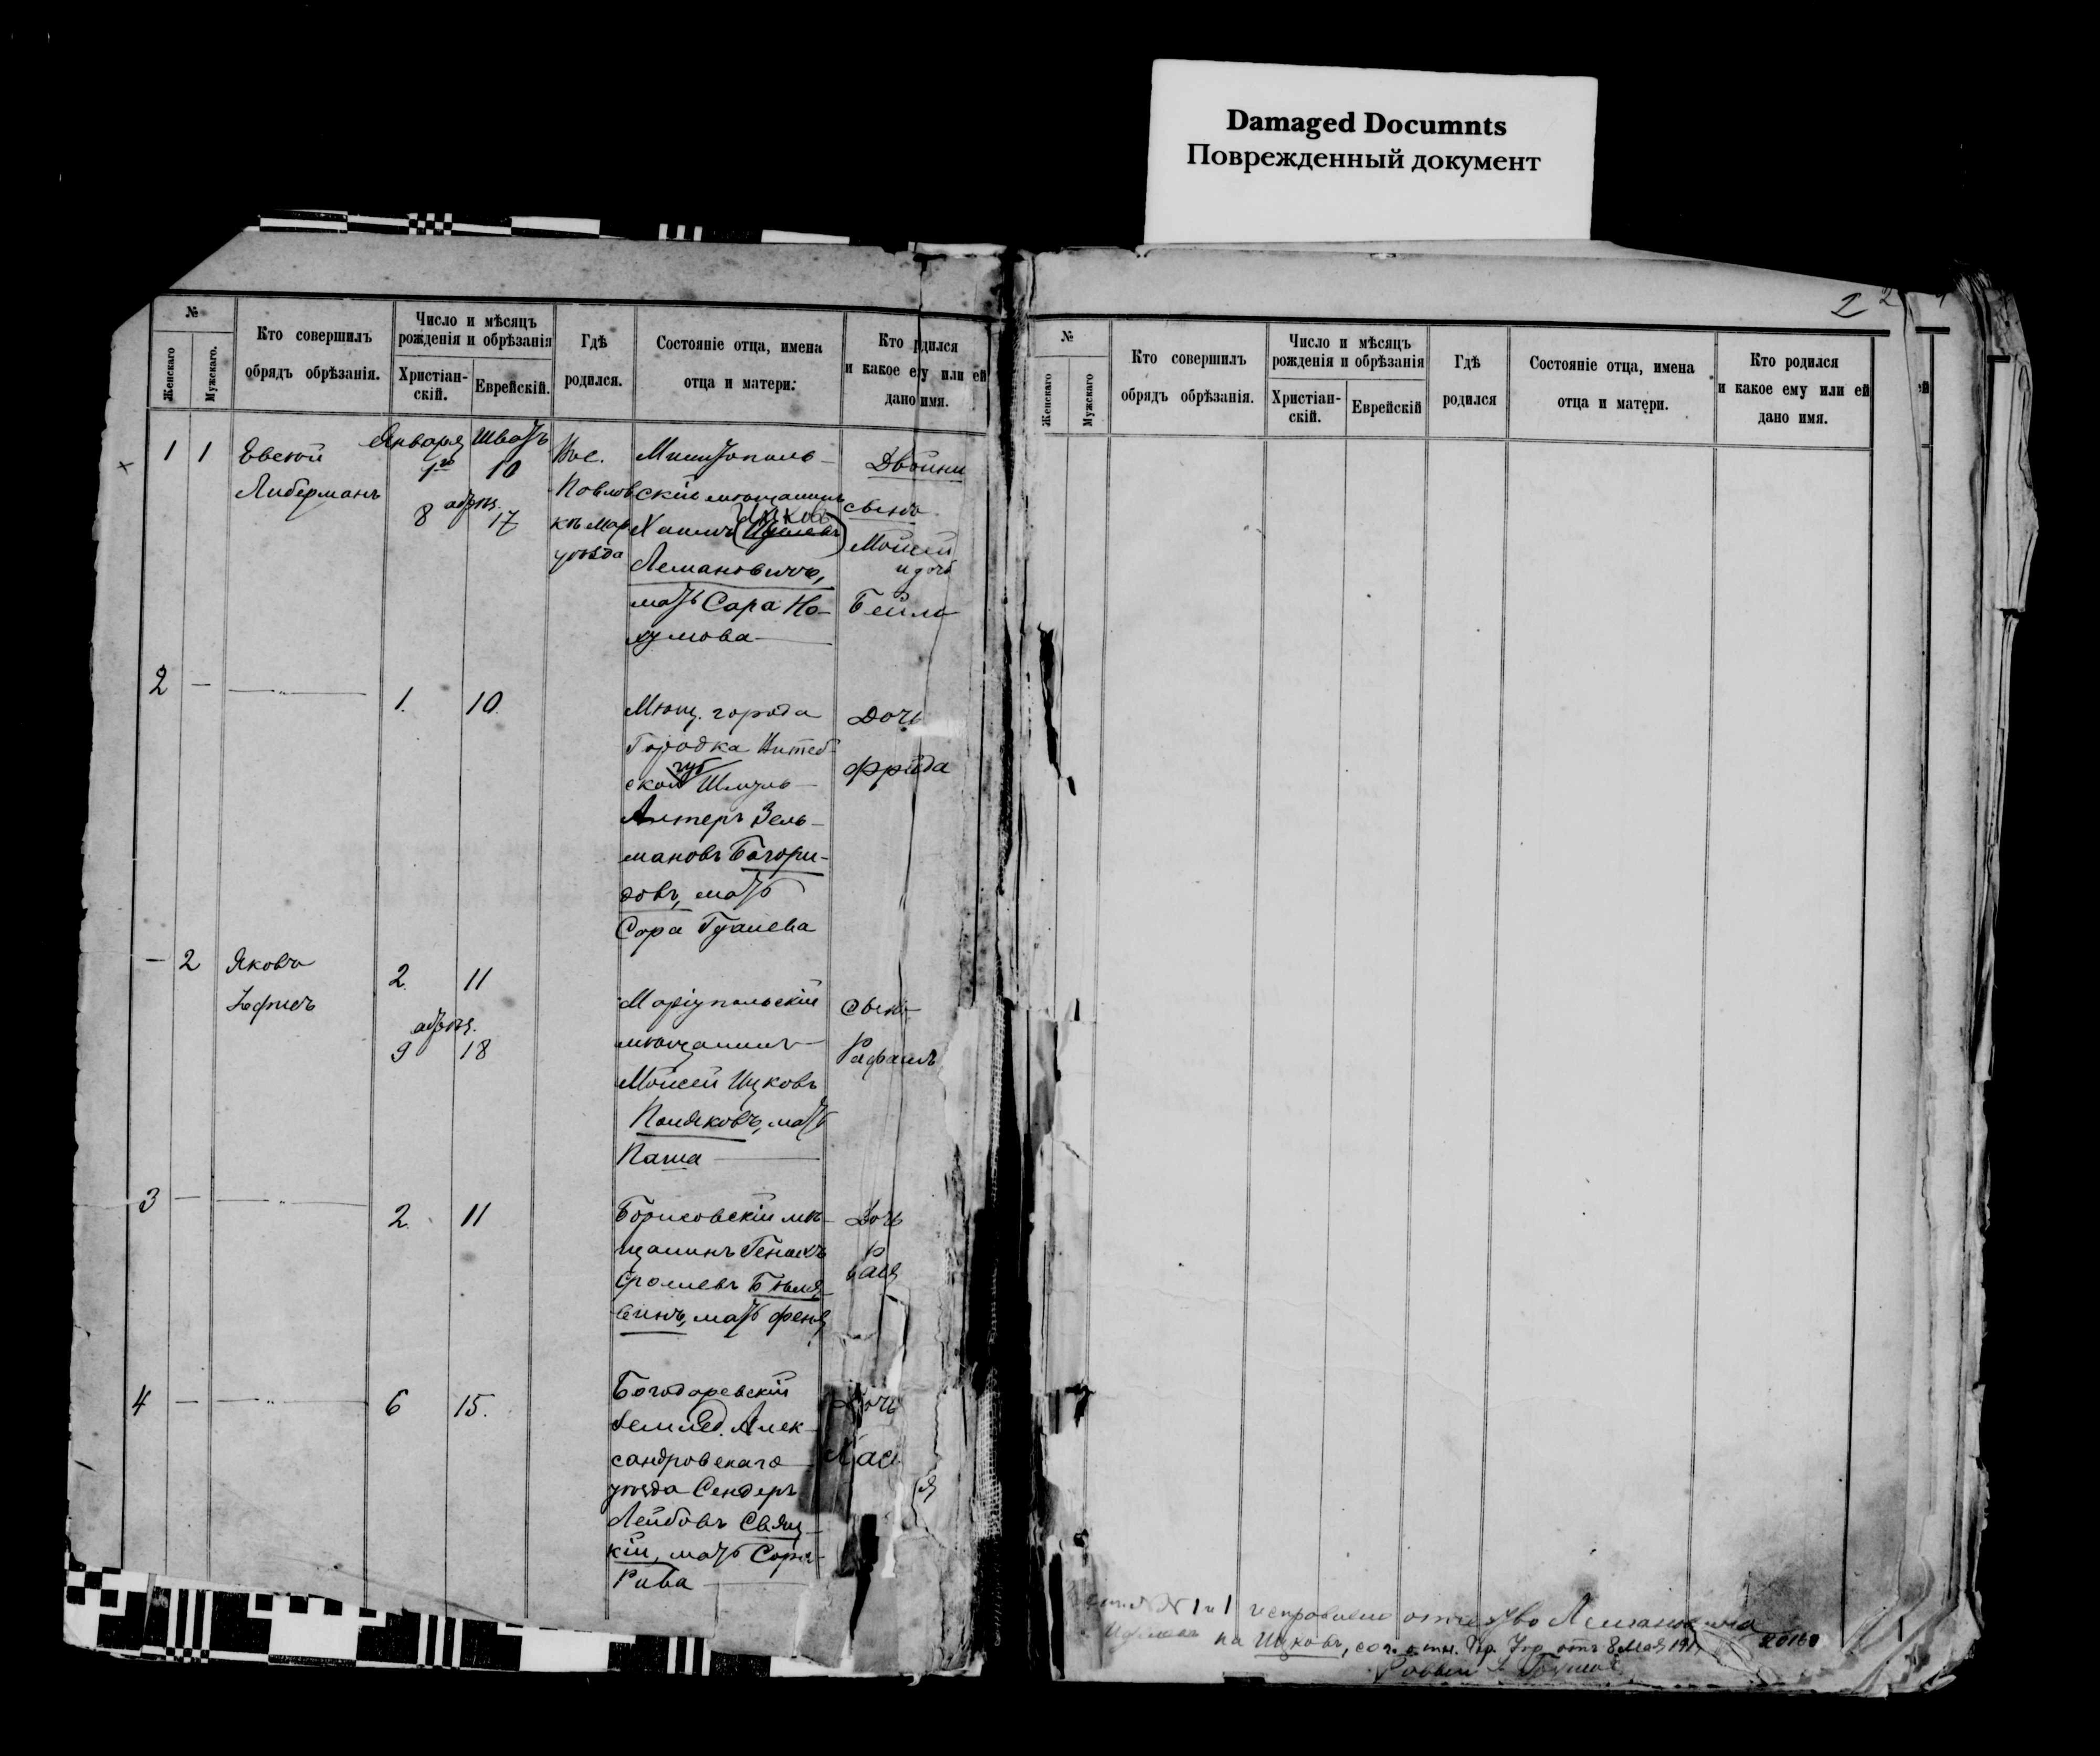 Damaged Documnts
Поврежденный документ
№
Женскаго
Мужскаго.
Кто совершилъ
обрядъ обрѣзанія.
Число и мѣсяцъ
рожденія и обрѣзанія
Христіан-
скій.
Еврейскій.
Гдѣ
родился.
Состояніе отца, имена
отца и матери.
Кто родился
и какое ему или ей
дано имя.
1 1
Евсей
Либерманъ
Января Шватъ
1го 10
обрѣз.
8 17
Пос.
Павлов
ка Мар
уѣзда
скій мѣщанинъ
Ицковъ
Хаимъ
Лемановичъ,
мать Сара На-
хумова
Двойни
сынъ
Мойсей
и дочь
Бейла
2 —
1. 10.
Мѣщ. города
Городка Витеб-
ской губ Шмуль-
Алтеръ Зель-
мановъ Богори-
довъ, мать
Сора
Дочь
Фрейда
— 2
Яковъ
2. 11
обрѣз.
9 18
Маріупольскій
мѣщанинъ
Мойсей Ицковъ
Поляковъ, мать
Паша
Сынъ
Рафаилъ
3 —
2. 11
Борисовскій мѣ-
щанинъ Генахъ
мать Феня
Дочь
Рася
4 —
6 15.
Богодаревскій
землед. Алек-
сандровскаго
уѣзда Сендеръ
Лейбовъ
кій, мать Сора-
Рива
Дочь
Хася
1 2
№
Женскаго
Мужскаго
Кто совершилъ
обрядъ обрѣзанія.
Число и мѣсяцъ
рожденія и обрѣзанія
Христіан-
скій.
Еврейскій
Гдѣ
родился
Состояніе отца, имена
отца и матери.
Кто родился
и какое ему или ей
дано имя.
№ 1 и 1 исправлено отчество Лемановича
на Ицковъ, отъ 8 Мая
Раввин